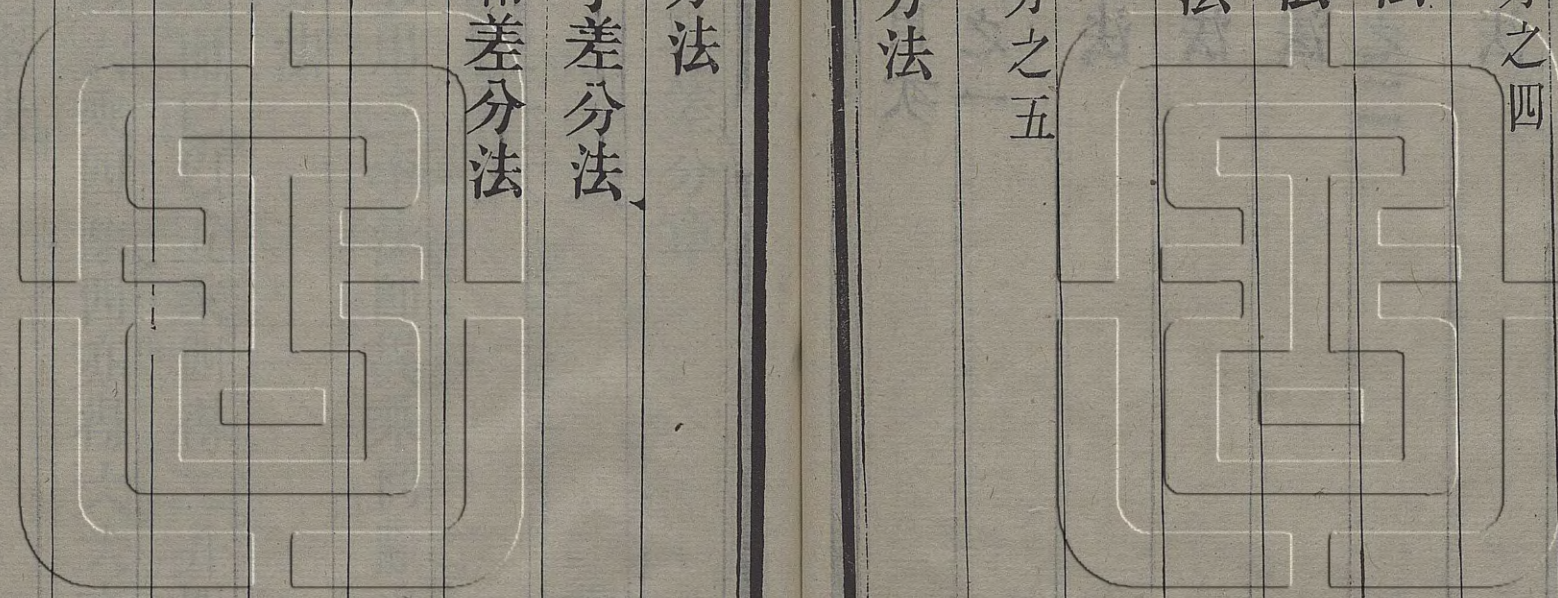 之四
法
法
法
之五
法
法
差分法
差分法